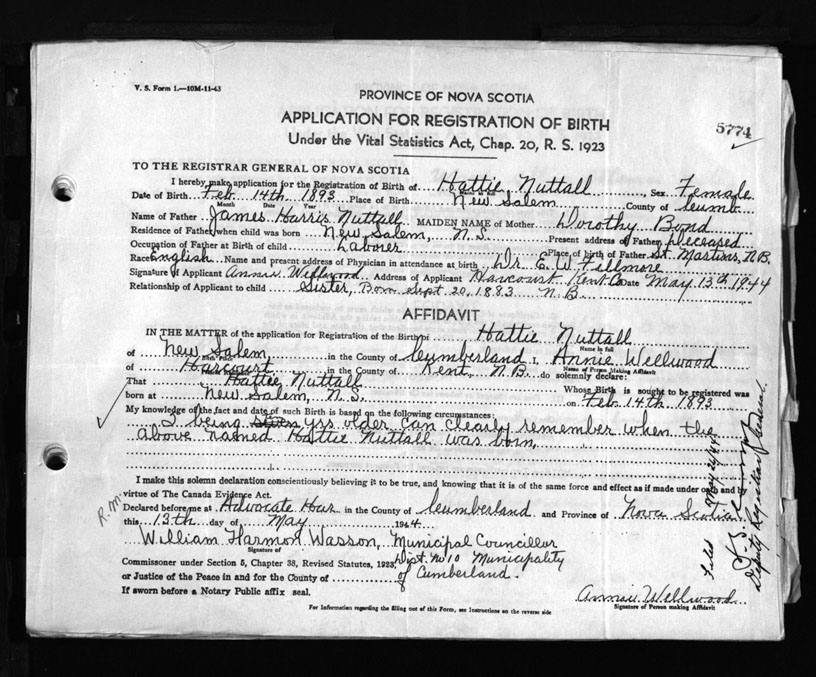 V. S. Form 1.—10M-11-43
PROVINCE OF NOVA SCOTIA
APPLICATION FOR REGISTRATION OF BIRTH
5774
Under the Vital Statistics Act, Chap. 20, R. S. 1923
TO THE REGISTRAR GENERAL OF NOVA SCOTIA
I hereby make application for the Registration of Birth of Hattie Nuttall, Sex Female
Name in full
Date of Birth Feb. 14th 1893 Place of Birth New Salem County of Cumb.
Month Date Year
Name of Father James Harris Nuttall MAIDEN NAME of Mother Dorothy Bond
Residence of Father when child was born New Salem, N.S. Present address of Father Deceased
Occupation of Father at Birth of child Laborer Place of Birth of Father St. Martins, N.B.
Race English Name and present address of Physician in attendance at birth Dr. E. W. Fillmore
Signature of Applicant Annie Wellwood Address of Applicant Harcourt Kent Co Date May 13th 1944
Relationship of Applicant to child Sister, Born Sept. 20, 1883 N.B.
AFFIDAVIT
IN THE MATTER of the application for Registration of the Birth of Hattie Nuttall
Name in full
of New Salem, in the County of Cumberland I, Annie Wellwood
Birth Place Name of Person Making Affidavit
of Harcourt in the County of Kent, N.B. do solemnly declare:
That Hattie Nuttall Whose Birth is sought to be registered was
born at New Salem, N.S. on Feb. 14th 1893
My knowledge of the fact and date of such Birth is based on the following circumstances:
I being yrs older can clearly remember when the
above named Hattie Nuttall was born,
I make this solemn declaration conscientiously believing it to be true, and knowing that it is of the same force and effect as if made under oath and by
virtue of The Canada Evidence Act.
R.M.
Declared before me at Advocate Har. in the County of Cumberland and Province of Nova Scotia
this 13th day of May 1944
William Harmon Wasson, Municipal Councillor
Signature of
Commissioner under Section 5, Chapter 38, Revised Statutes, 1923, Dist. No 10 Municipality
or Justice of the Peace in and for the County of of Cumberland.
If sworn before a Notary Public affix seal.
Annie Wellwood
Signature of Person making Affidavit
For Information regarding the filling out of this Form, see Instructions on the reverse side
Filed May
Deputy Registrar General